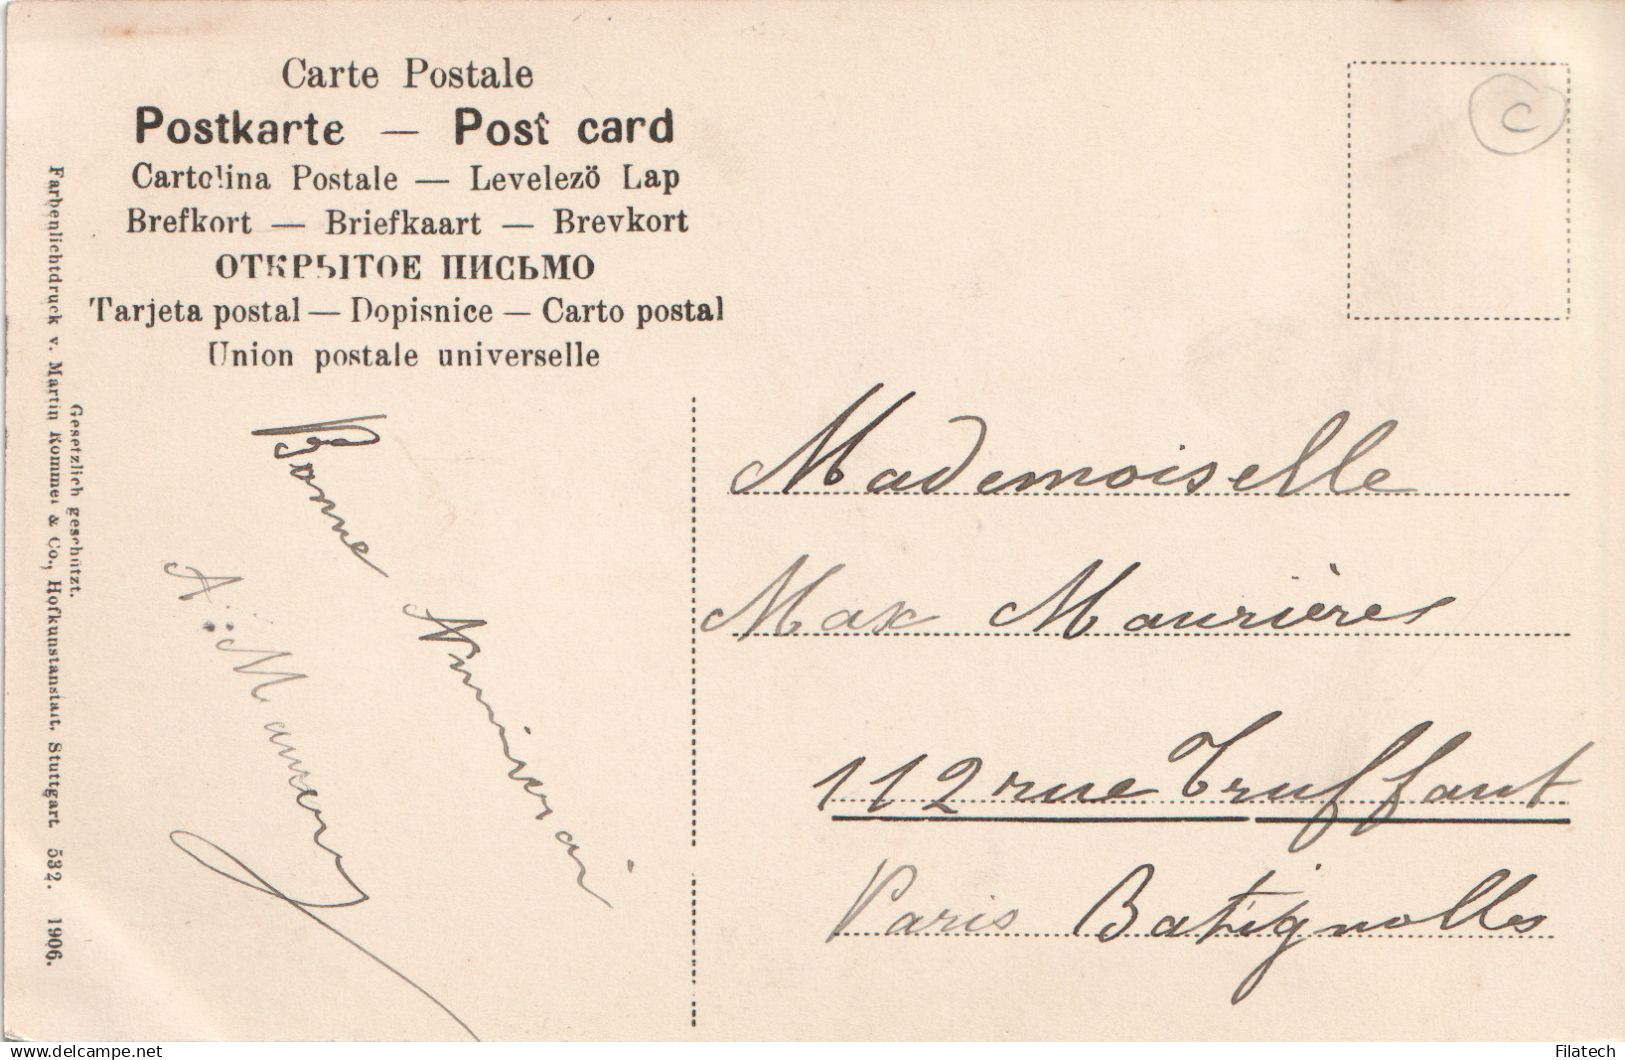 Carte Postale
Postkarte — Post card
Cartolina Postale — Levelezö Lap
Brefkort — Briefkaart — Brevkort
ОТКРЫТОЕ ПИСЬМО
Tarjeta postal — Dopisnice — Carto postal
Union postale universelle
Gesetzlich geschützt.
Farbenlichtdruck v. Martin Rommel & Co., Hofkunstanstalt, Stuttgart. 532. 1906.
Bonne
A.
Mademoiselle
Max Maurières
112 rue Truffaut
Paris Batignolles
c
Filatech